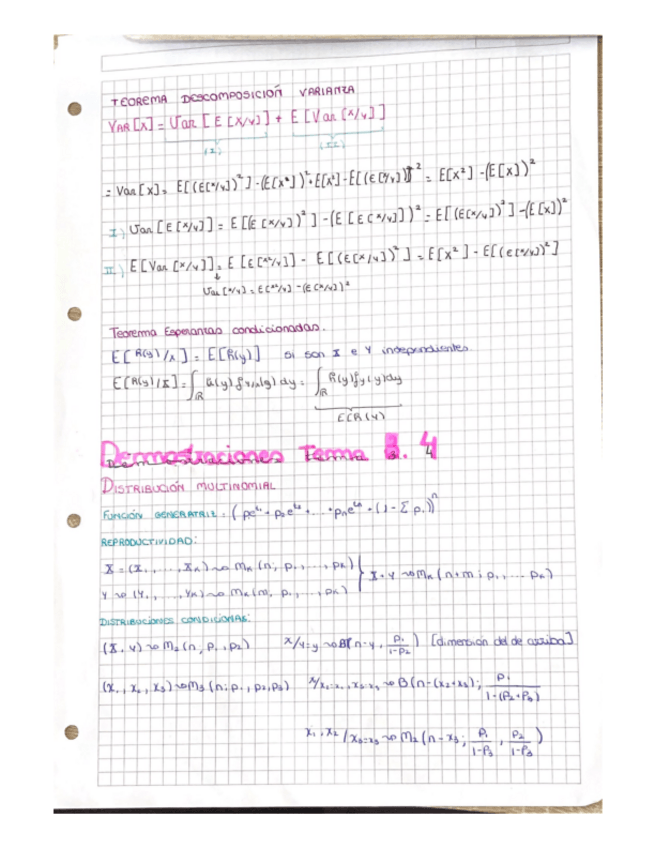 TEOREMA DESCOMPOSICIÓN VARIANZA
VAR[X] = Var[E[X/Y]] + E[Var[X/Y]]
(I) (II)
= Var[X] = E[(E[X/Y])²] - (E[X])² + E[X²] - E[(E[X/Y])]² = E[X²] - (E[X])²
I) Var[E[X/Y]] = E[(E[X/Y])²] - (E[E[X/Y]])² = E[(E[X/Y])²] - (E[X])²
II) E[Var[X/Y]] = E[E[X²/Y]] - E[(E[X/Y])²] = E[X²] - E[(E[X/Y])²]
↓
Var[X/Y] = E[X²/Y] - (E[X/Y])²
Teorema Esperanzas condicionadas.
E[R(y)/X] = E[R(y)] si son X e Y independientes
E[R(y)/X] = ∫ℝ R(y) f y/x(y) dy = ∫ℝ R(y) fy(y) dy
E(R(Y))
Demostraciones Tema 4
DISTRIBUCIÓN MULTINOMIAL
FUNCIÓN GENERATRIZ:
REPRODUCTIVIDAD:
X = (X₁, ..., Xₖ) ~> Mₖ(n; p₁, ..., pₖ) } X + Y ~> Mₖ(n+m; p₁, ... pₖ)
Y ~> (Y₁, ..., Yₖ) ~> Mₖ(m, p₁, ..., pₖ)
(X, Y) ~> M₂(n, p₁, p₂) X/Y=y ~> B(n-y, p₁/1-p₂) [dimensión del de arriba]
(X₁, X₂, X₃) ~> M₃(n; p₁, p₂, p₃) X₁/X₂=x₂, X₃=x₃ ~> B(n-(x₂+x₃); p₁/1-(p₂+p₃))
X₁, X₂/X₃=x₃ ~> M₂(n-x₃; p₁/1-p₃, p₂/1-p₃)